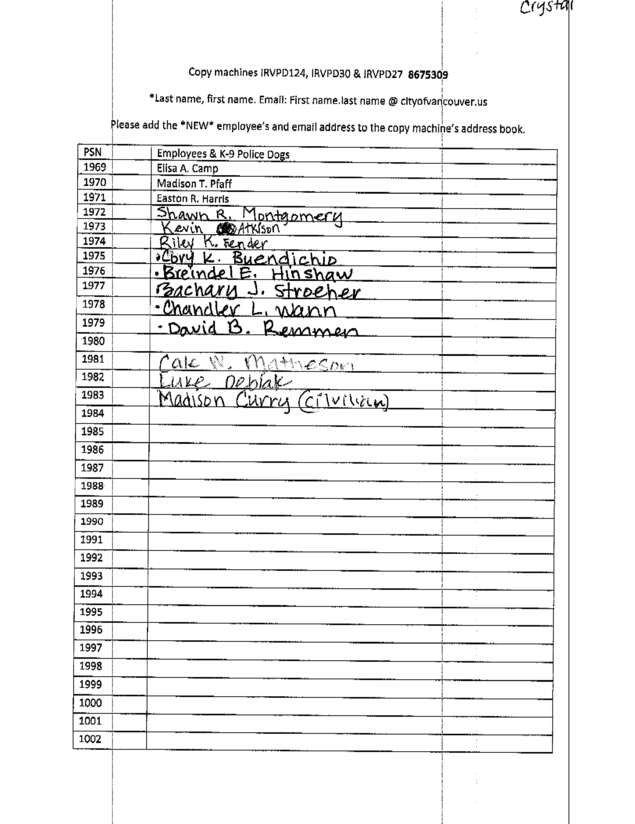 Crystal
Copy machines IRVPD124, IRVPD30 & IRVPD27 8675309
*Last name, first name. Email: First name.last name @ cityofvancouver.us
Please add the *NEW* employee's and email address to the copy machine's address book.
PSN Employees & K-9 Police Dogs
1969 Elisa A. Camp
1970 Madison T. Pfaff
1971 Easton R. Harris
1972 Shawn R. Montgomery
1973 Kevin Atkison
1974 Riley K. Fender
1975 •Cory K. Buendichio
1976 •Breindel E. Hinshaw
1977 Zachary J. Stroeher
1978 •Chandler L. Wann
1979 •David B. Remmen
1980
1981 Cale W. Matheson
1982 Luke Debiak
1983 Madison Curry (Civilian)
1984
1985
1986
1987
1988
1989
1990
1991
1992
1993
1994
1995
1996
1997
1998
1999
1000
1001
1002